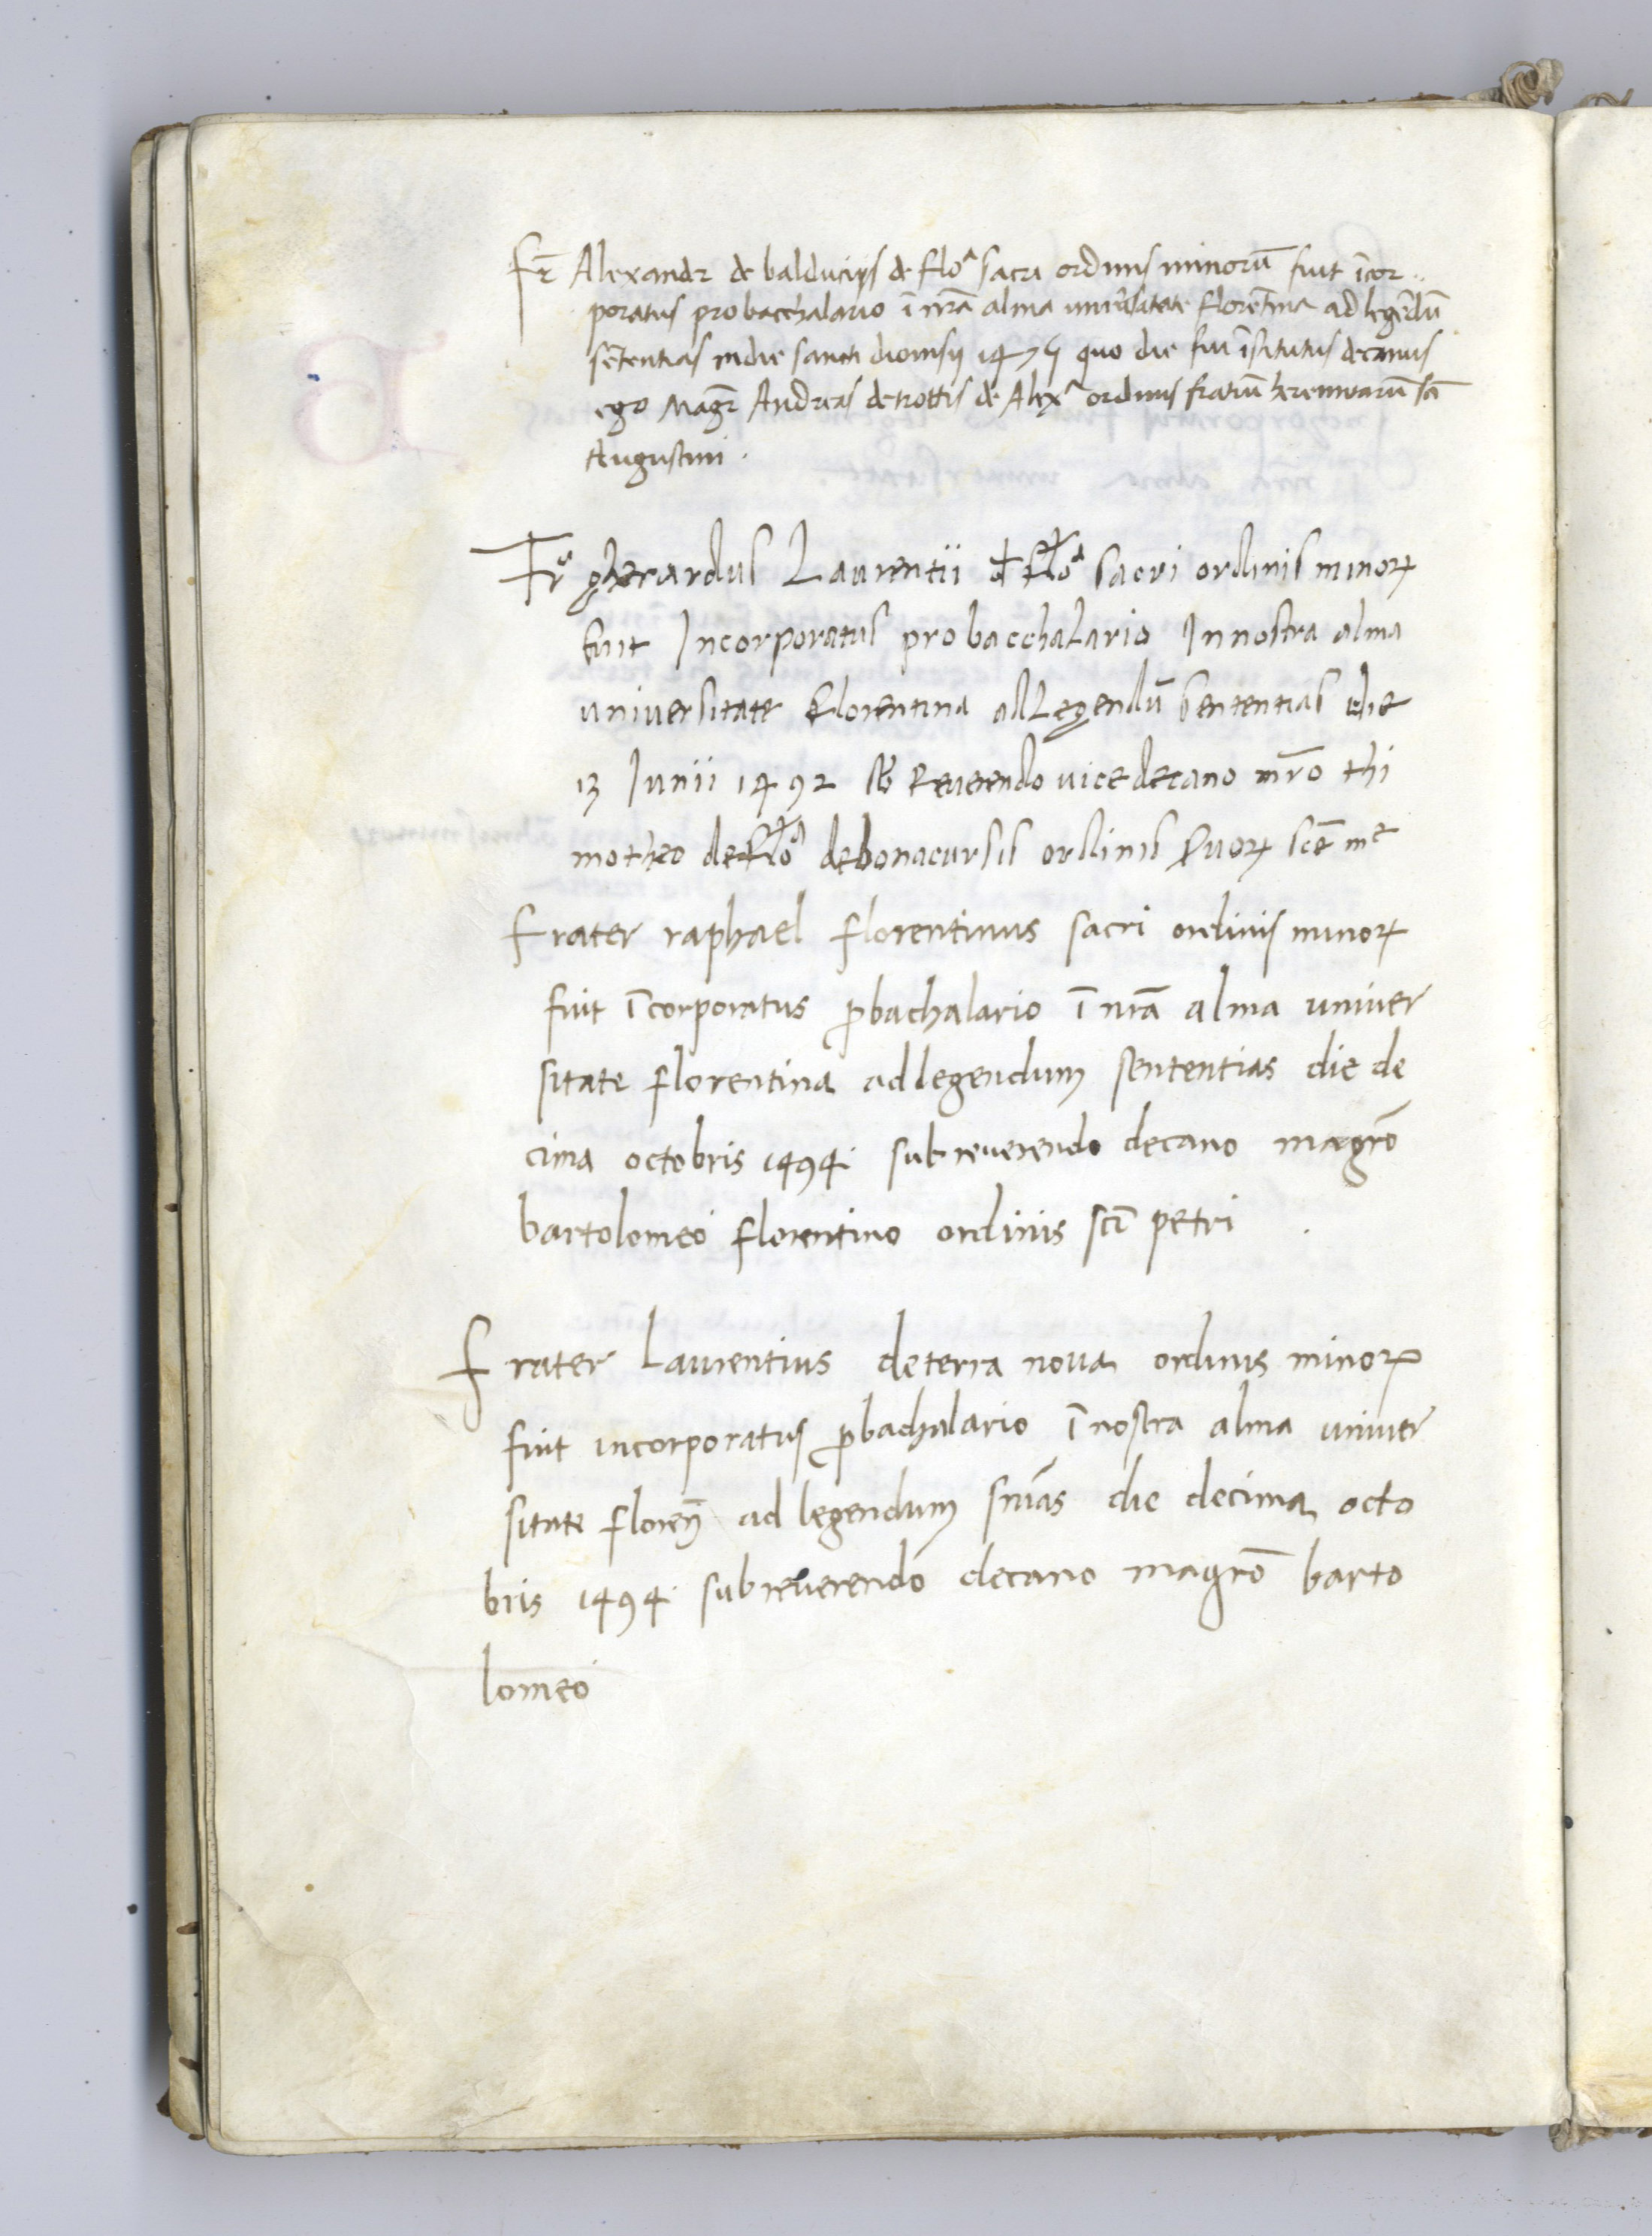 Fr̄ Alexandr de balducijs de floᵃ sacri ordinis minorū fuit īcor..
poratus pro bacchalario ī nr̄a alma uniũsitate florētina ad legēdū
sētentias in die sancti dionisij 1475 quo die fui īstitutus decanus
ego Magr̄ Andreas de trottis de Alexᵃ ordinis fratrū heremitarū sc̄i
Augustini.
Fr̄ gherardus Laurentii đ floᵃ sacri ordinis minorꝝ
fuit Incorporatus pro bacchalario In nostra alma
universitate florentina ad Legendū sententias die
13 Iunii 1492 sƀ Reverendo vice decano mr̄o thi
motheo de floᵃ de bonacursis ordinis ẜuorꝝ sc̄e mᵉ
Frater raphael florentinus sacri ordinis minorꝝ
fuit īcorporatus ꝓbachalario ī nr̄a alma univer
sitate florentina ad legendum sententias die de
cima octobris 1494. sub reverendo decano magr̄o
bartolomeo florentino ordinis sc̄i petri .
Frater Laurentius de terra nova ordinis minorꝝ
fuit incorporatus ꝓbachalario ī nostra alma univer
sitate floren̄ ad legendum sn̄ias die decima octo
bris 1494. sub reverendo decano magr̄o barto
lomeo